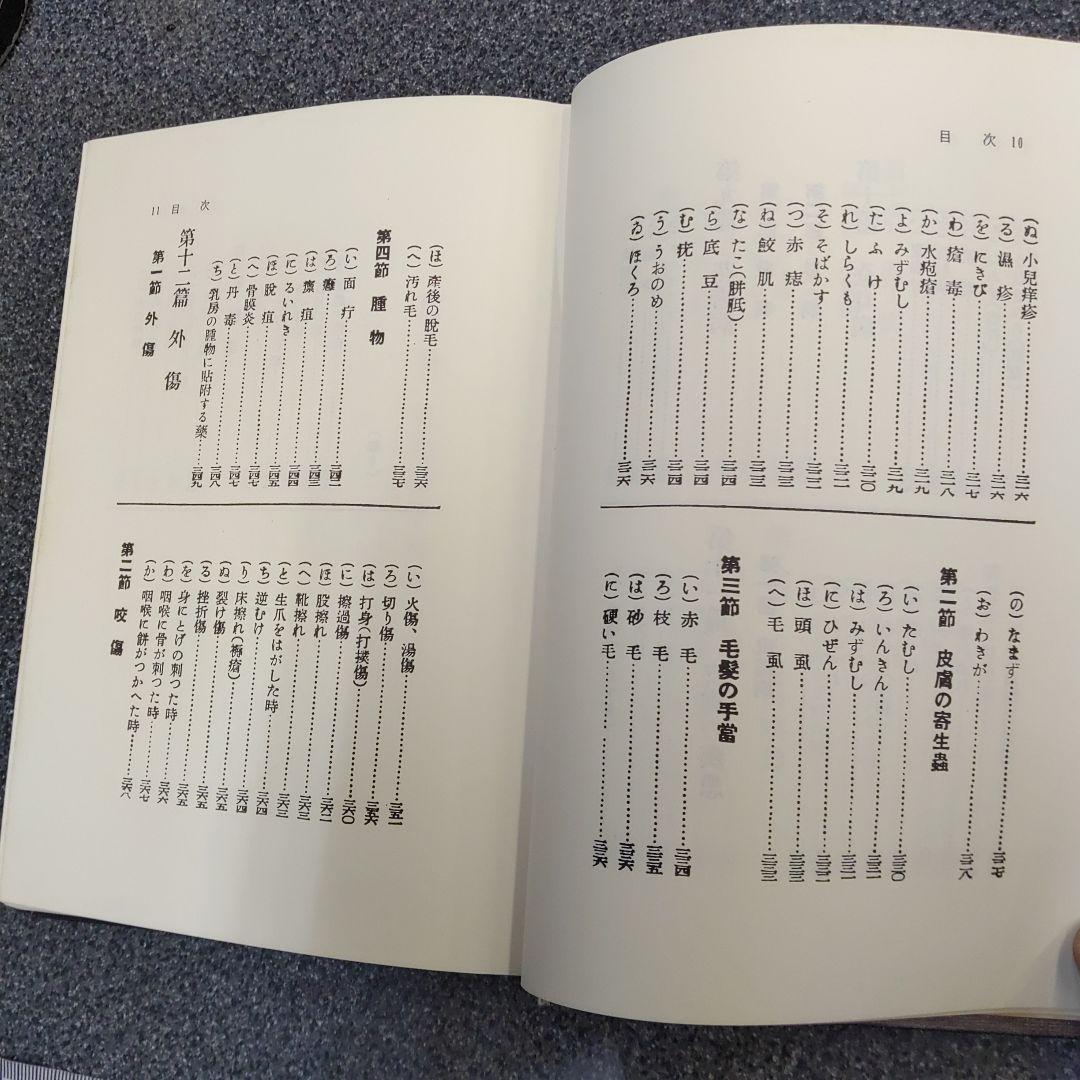 目 次 10
(ぬ) 小兒痒疹……三一六
(る) 濕疹……三一六
(を) にきび……三一七
(わ) 瘡毒……三一八
(か) 水疱瘡……三一九
(よ) みずむし……三一九
(た) ふけ……三二〇
(れ) しらくも……三二一
(そ) そばかす……三二二
(つ) 赤痣……三二三
(ね) 鮫肌……三二三
(な) たこ(胼胝)……三二四
(ら) 底豆……三二四
(む) 疣……三二四
(う) うおのめ……三二六
(ゐ) ほくろ……三二六
(の) なまず……三二七
(お) わきが……三二八
第二節 皮膚の寄生蟲
(い) たむし……三三〇
(ろ) いんきん……三三一
(は) みずむし……三三一
(に) ひぜん……三三二
(ほ) 頭虱……三三三
(へ) 毛虱……三三三
第三節 毛髮の手當
(い) 赤毛……三三四
(ろ) 枝毛……三三五
(は) 砂毛……三三六
(に) 硬い毛……三三六
11 目 次
(ほ) 產後の脫毛……三三六
(へ) 汚れ毛……三三七
第四節 腫物
(い) 面疔……三四一
(ろ) 癰……三四二
(は) 瘭疽……三四三
(に) るいれき……三四四
(ほ) 脫疽……三四五
(へ) 骨膜炎……三四七
(と) 丹毒……三四七
(ち) 乳房の腫物に貼附する藥……三四八
第十二篇 外傷……三四九
第一節 外傷
(い) 火傷、湯傷……三五一
(ろ) 切り傷……三五六
(は) 打身(打撲傷)……
(に) 擦過傷……三六〇
(ほ) 股擦れ……三六二
(へ) 靴擦れ……三六三
(と) 生爪をはがした時……三六三
(ち) 逆むけ……三六四
(り) 床擦れ(褥瘡)……三六四
(ぬ) 裂け傷……三六五
(る) 挫折傷……三六五
(を) 身にとげの刺つた時……三六五
(わ) 咽喉に骨が刺つた時……三六六
(か) 咽喉に餅がつかへた時……三六七
第二節 咬傷……三六八